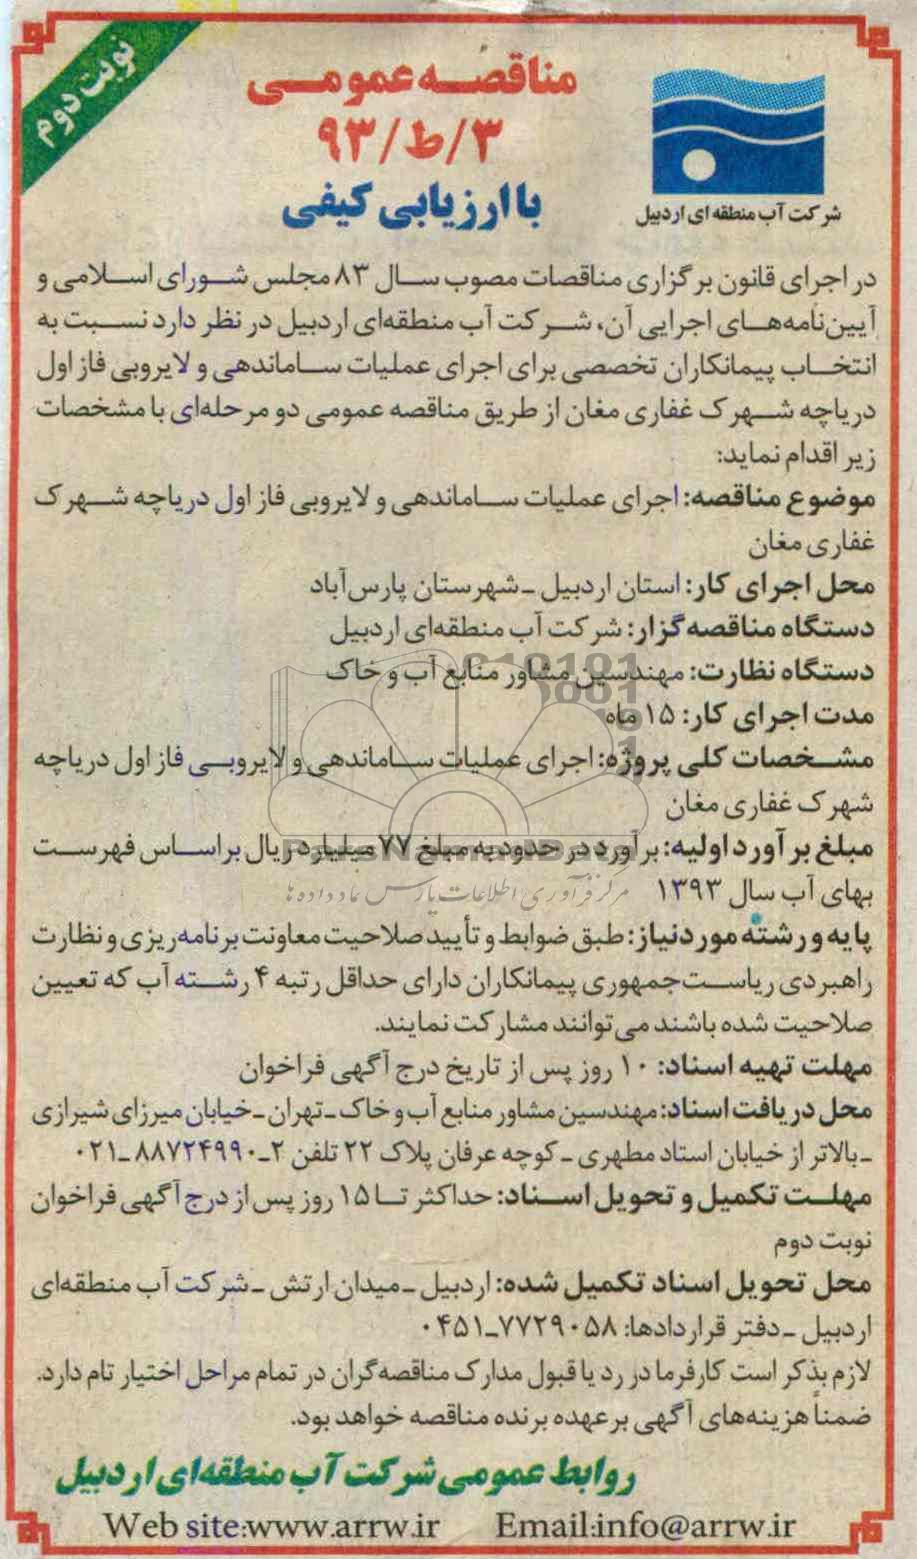 نوبت دوم
مناقصه عمومی
۳/ط/۹۳
با ارزیابی کیفی
شرکت آب منطقه ای اردبیل
در اجرای قانون برگزاری مناقصات مصوب سال ۸۳ مجلس شورای اسلامی و
آیین‌نامه‌های اجرایی آن، شرکت آب منطقه‌ای اردبیل در نظر دارد نسبت به
انتخاب پیمانکاران تخصصی برای اجرای عملیات ساماندهی و لایروبی فاز اول
دریاچه شهرک غفاری مغان از طریق مناقصه عمومی دو مرحله‌ای با مشخصات
زیر اقدام نماید:
موضوع مناقصه: اجرای عملیات ساماندهی و لایروبی فاز اول دریاچه شهرک
غفاری مغان
محل اجرای کار: استان اردبیل ـ شهرستان پارس‌آباد
دستگاه مناقصه گزار: شرکت آب منطقه‌ای اردبیل
دستگاه نظارت: مهندسین مشاور منابع آب و خاک
مدت اجرای کار: ۱۵ ماه
مشخصات کلی پروژه: اجرای عملیات ساماندهی و لایروبی فاز اول دریاچه
شهرک غفاری مغان
مبلغ برآورد اولیه: برآورد در حدود به مبلغ ۷۷ میلیارد ریال براساس فهرست
بهای آب سال ۱۳۹۳
پایه و رشته مورد نیاز: طبق ضوابط و تأیید صلاحیت معاونت برنامه‌ریزی و نظارت
راهبردی ریاست‌جمهوری پیمانکاران دارای حداقل رتبه ۴ رشته آب که تعیین
صلاحیت شده باشند می‌توانند مشارکت نمایند.
مهلت تهیه اسناد: ۱۰ روز پس از تاریخ درج آگهی فراخوان
محل دریافت اسناد: مهندسین مشاور منابع آب و خاک ـ تهران ـ خیابان میرزای شیرازی
ـ بالاتر از خیابان استاد مطهری ـ کوچه عرفان پلاک ۲۲ تلفن ۲ـ۸۸۷۲۴۹۹۰ـ۰۲۱
مهلت تکمیل و تحویل اسناد: حداکثر تا ۱۵ روز پس از درج آگهی فراخوان
نوبت دوم
محل تحویل اسناد تکمیل شده: اردبیل ـ میدان ارتش ـ شرکت آب منطقه‌ای
اردبیل ـ دفتر قراردادها: ۷۷۲۹۰۵۸ـ۰۴۵۱
لازم بذکر است کارفرما در رد یا قبول مدارک مناقصه‌گران در تمام مراحل اختیار تام دارد.
ضمناً هزینه‌های آگهی برعهده برنده مناقصه خواهد بود.
روابط عمومی شرکت آب منطقه‌ای اردبیل
Web site:www.arrw.ir Email:info@arrw.ir